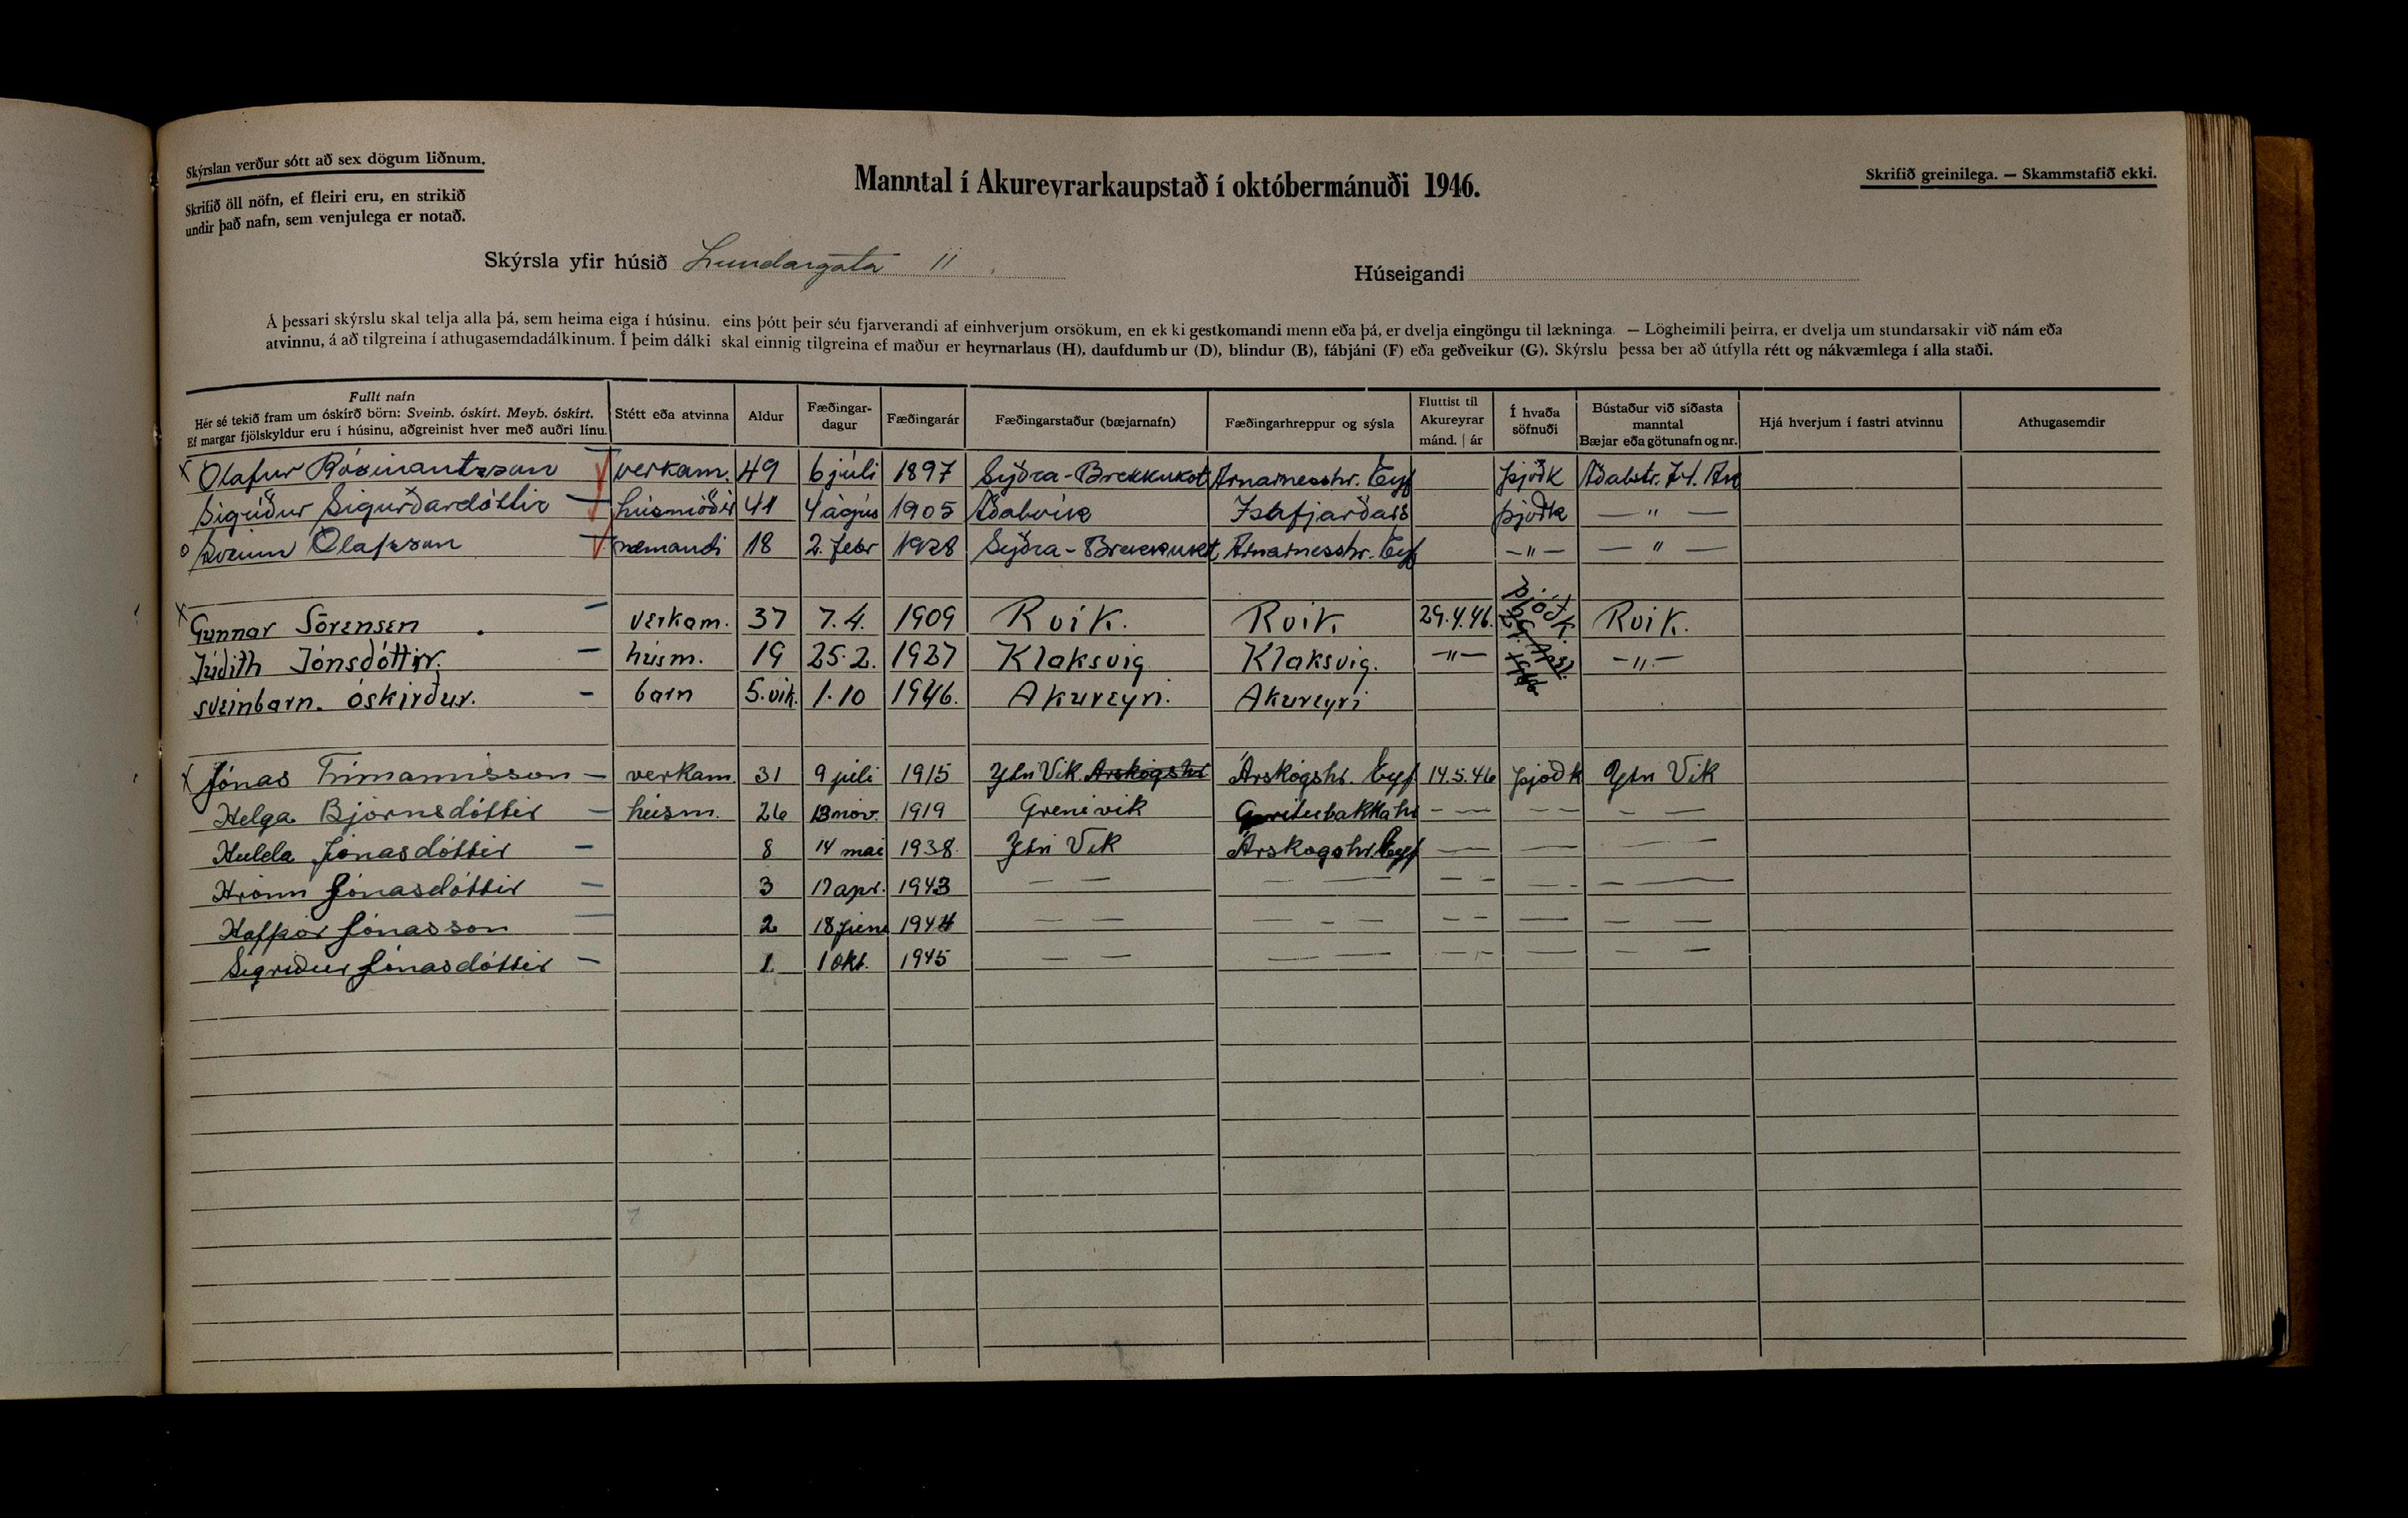 Skýrslan verður sótt að sex dögum liðnum.
Skrifið öll nöfn, ef fleiri eru, en strikið
undir það nafn, sem venjulega er notað.
Manntal í Akureyrarkaupstað í októbermánuði 1946.
Skrifið greinilega. — Skammstafið ekki.
Skýrsla yfir húsið Lundargata 11
Húseigandi
Á þessari skýrslu skal telja alla þá, sem heima eiga í húsinu. eins þótt þeir séu fjarverandi af einhverjum orsökum, en ekki gestkomandi menn eða þá, er dvelja eingöngu til lækninga. — Lögheimili þeirra, er dvelja um stundarsakir við nám eða
atvinnu, á að tilgreina í athugasemdadálkinum. Í þeim dálki skal einnig tilgreina ef maður er heyrnarlaus (H), daufdumbur (D), blindur (B), fábjáni (F) eða geðveikur (G). Skýrslu þessa ber að útfylla rétt og nákvæmlega í alla staði.
Fullt nafn
Hér sé tekið fram um óskírð börn: Sveinb. óskírt. Meyb. óskírt.
Ef margar fjölskyldur eru í húsinu, aðgreinist hver með auðri línu.
Stétt eða atvinna
Aldur
Fæðingar-
dagur
Fæðingarár
Fæðingarstaður (bæjarnafn)
Fæðingarhreppur og sýsla
Fluttist til
Akureyrar
mánd. | ár
Í hvaða
söfnuði
Bústaður við síðasta
manntal
Bæjar eða götunafn og nr.
Hjá hverjum í fastri atvinnu
Athugasemdir
x Ólafur Rósinantsson — verkam. 49 6 júlí 1897 Syðra-Brekkukot Arnarnesshr. Eyf þjóðk Aðalstr.
Sigríður Sigurðardóttir — húsmóðir 41 4 ágús 1905 Aðalvík Ísafjarðars þjóðk — " —
o Sveinn Ólafsson — nemandi 18 2. febr 1928 Syðra-Brekkukot Arnarnesshr. Eyf — " — — " —
x Gunnar Sörensen — verkam. 37 7.4. 1909 Rvík. Rvík 29.4.46. Þjóðk. Rvík.
Júdith Jónsdóttir. — húsm. 19 25.2. 1927 Klaksvig Klaksvig. — " — — " —
sveinbarn. óskirður. — barn 5.vik. 1.10 1946. Akureyri. Akureyri
x Jónas Trímannsson — verkam. 31 9 júlí 1915 Ytri Vik Arskógshr Árskógshr. Eyf 14.5.46 þjóðk Ytri Vik
Helga Björnsdóttir — húsm. 26 13 nóv. 1919 Grenivik — — — — — —
Hulda Jónasdóttir — 8 14 mai 1938 Ytri Vik Árskógshr. Eyf — — — —
Hrönn Jónasdóttir — 3 17 apr. 1943 — — — — — — — — — —
Hafþór Jónasson — 2 18 júní 1944 — — — — — — — — — —
Sigríður Jónasdóttir — 1 1 okt. 1945 — — — — — — — — —